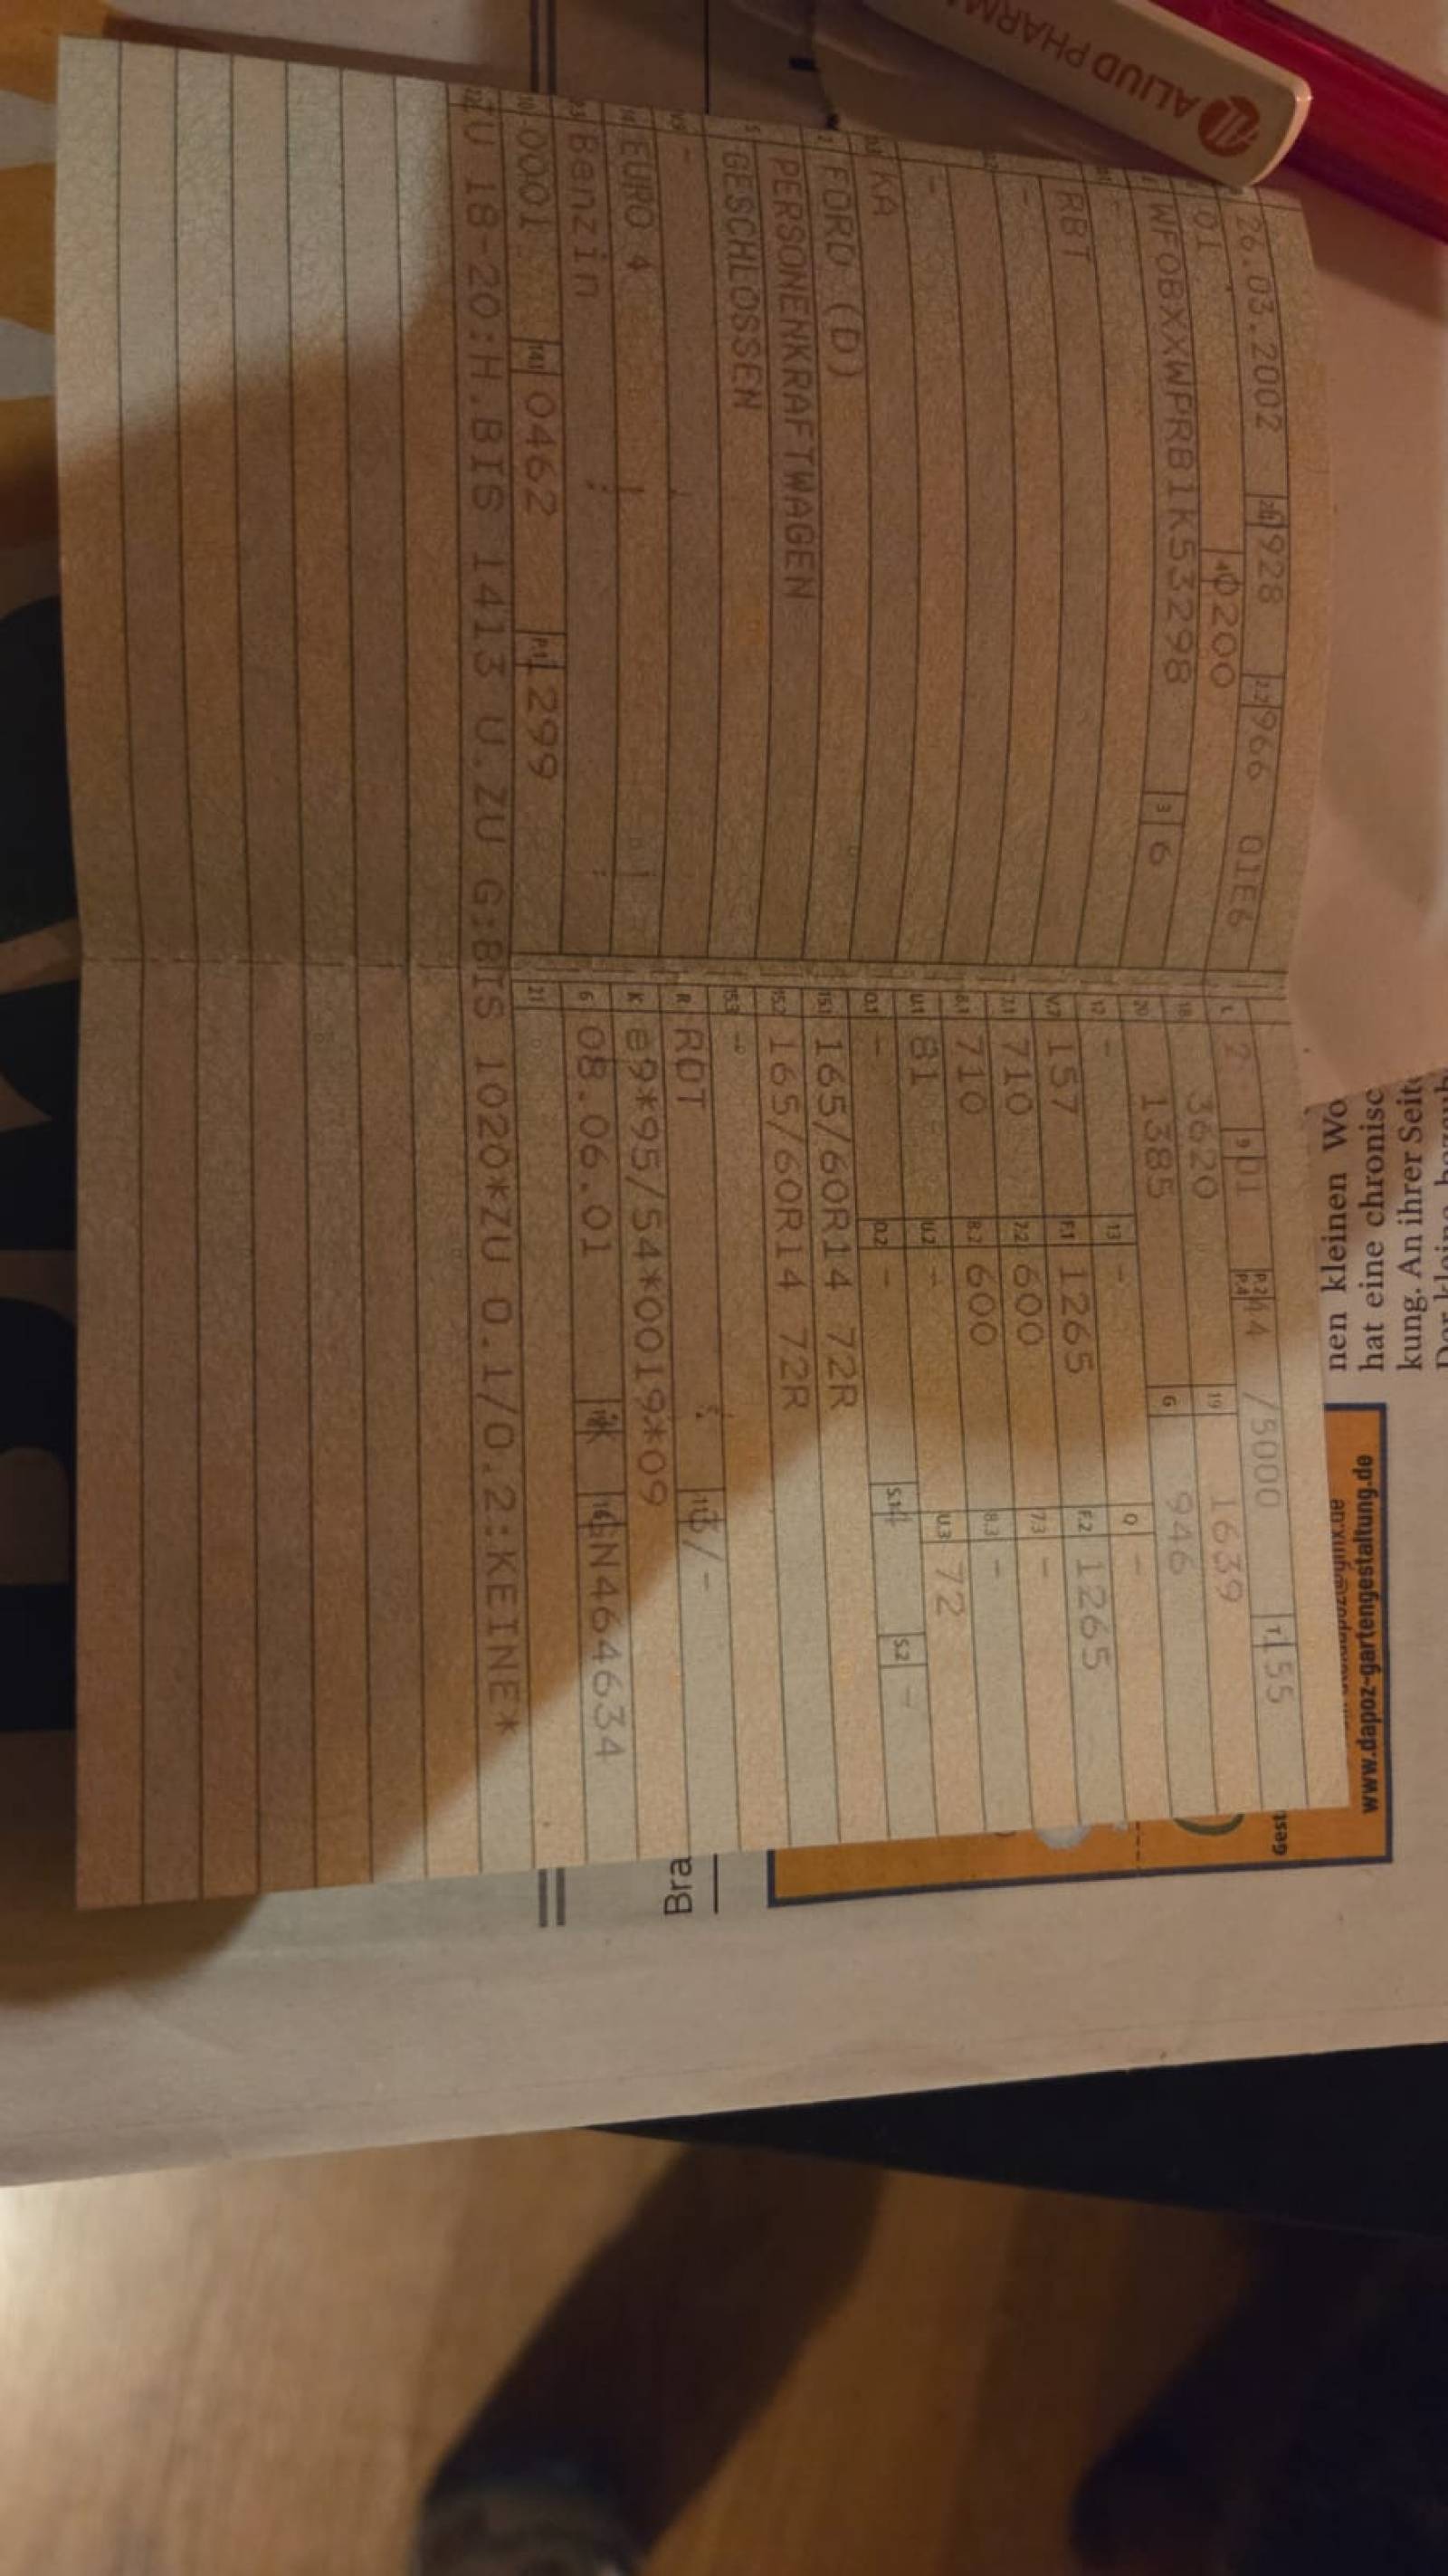 ALIUD PHARMA
26.03.2002 2.1 928 2.2 966 01E6
01 4 0200
WF0BXXWPRB1K53298 3 6
-
RBT
-
-
KA
FORD (D)
PERSONENKRAFTWAGEN
5 GESCHLOSSEN
-
EURO 4
Benzin
10 0001 14.1 0462 P.1 1299
22 ZU 18-20:H.BIS 1413 U.ZU G:BIS 1020*ZU 0.1/0.2:KEINE*
L 2 9 01 P.2 P.4 44 /5000 T 155
18 3620 19 1639
20 1385 G 946
12 - 13 - Q -
V.7 157 F.1 1265 F.2 1265
7.1 710 7.2 600 7.3 -
8.1 710 8.2 600 8.3 -
U.1 81 U.2 - U.3 72
O.1 - O.2 - S.1 4 S.2 -
15.1 165/60R14 72R
15.2 165/60R14 72R
15.3 -
R ROT 11 3/-
K e9*95/54*0019*09
6 08.06.01 K 16 SN464634
21
nen kleinen Wo
hat eine chronisc
kung. An ihrer Seite
www.dapoz-gartengestaltung.de
Gest
Bra